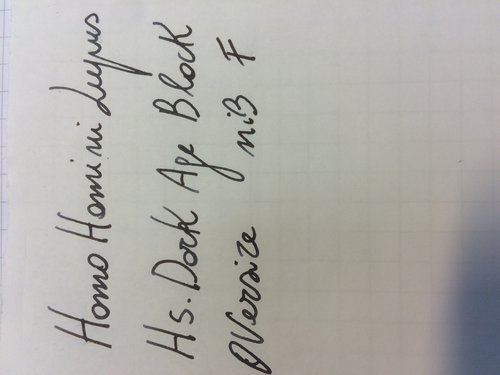 Homo Homini Lupus
Hs. Dark Age Block
OVersize niB F